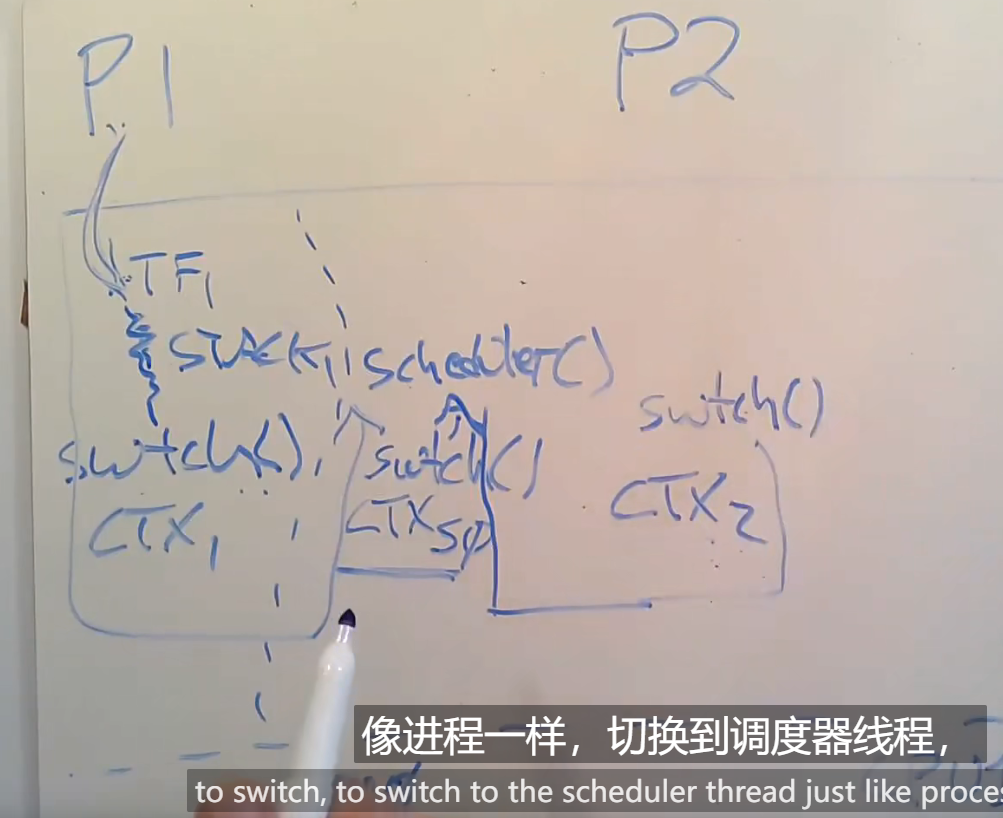 P1 P2
TF1
STACK1 scheduler()
switch()
switch() switch()
CTX1 CTX CTX2
像进程一样，切换到调度器线程，
to switch, to switch to the scheduler thread just like proces